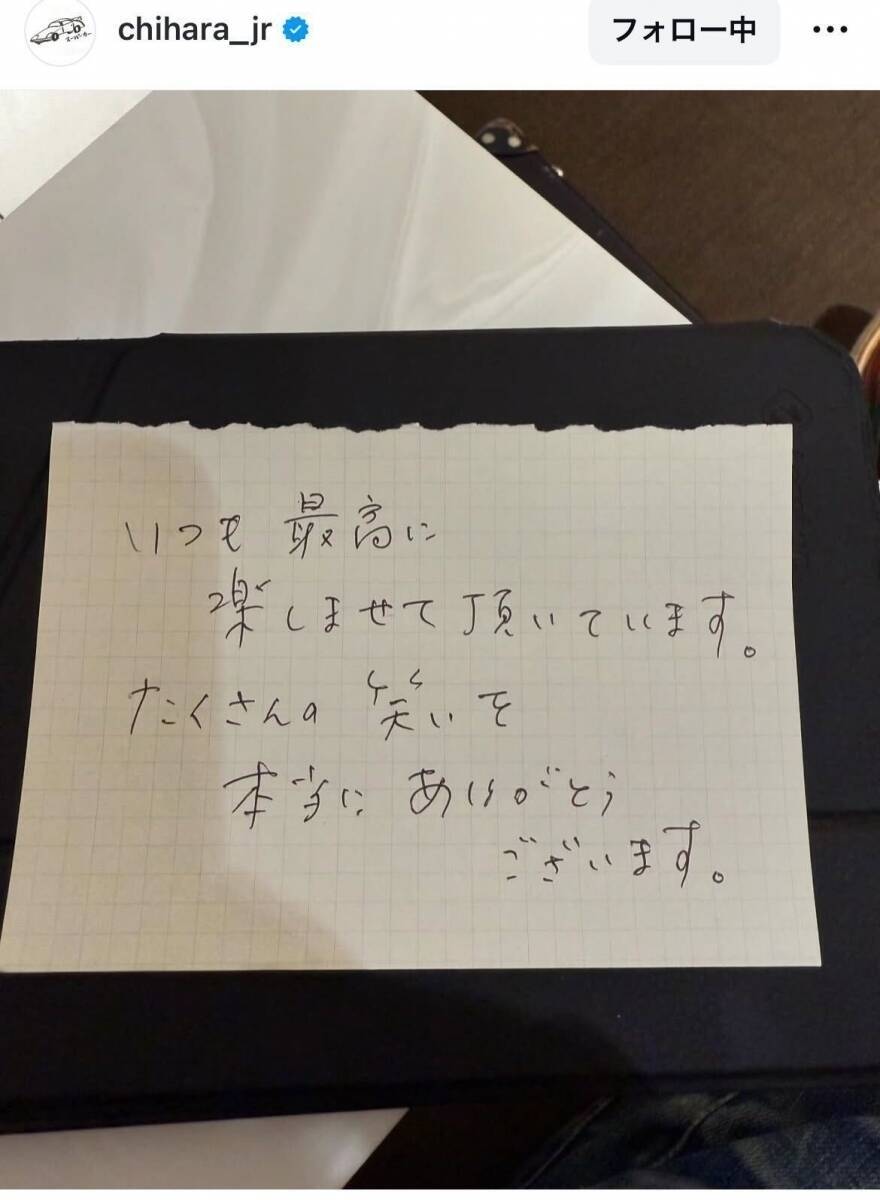 chihara_jr
フォロー中
スーパーカー
いつも最高に
楽しませて頂いています。
たくさんの笑いを
本当にありがとう
ございます。